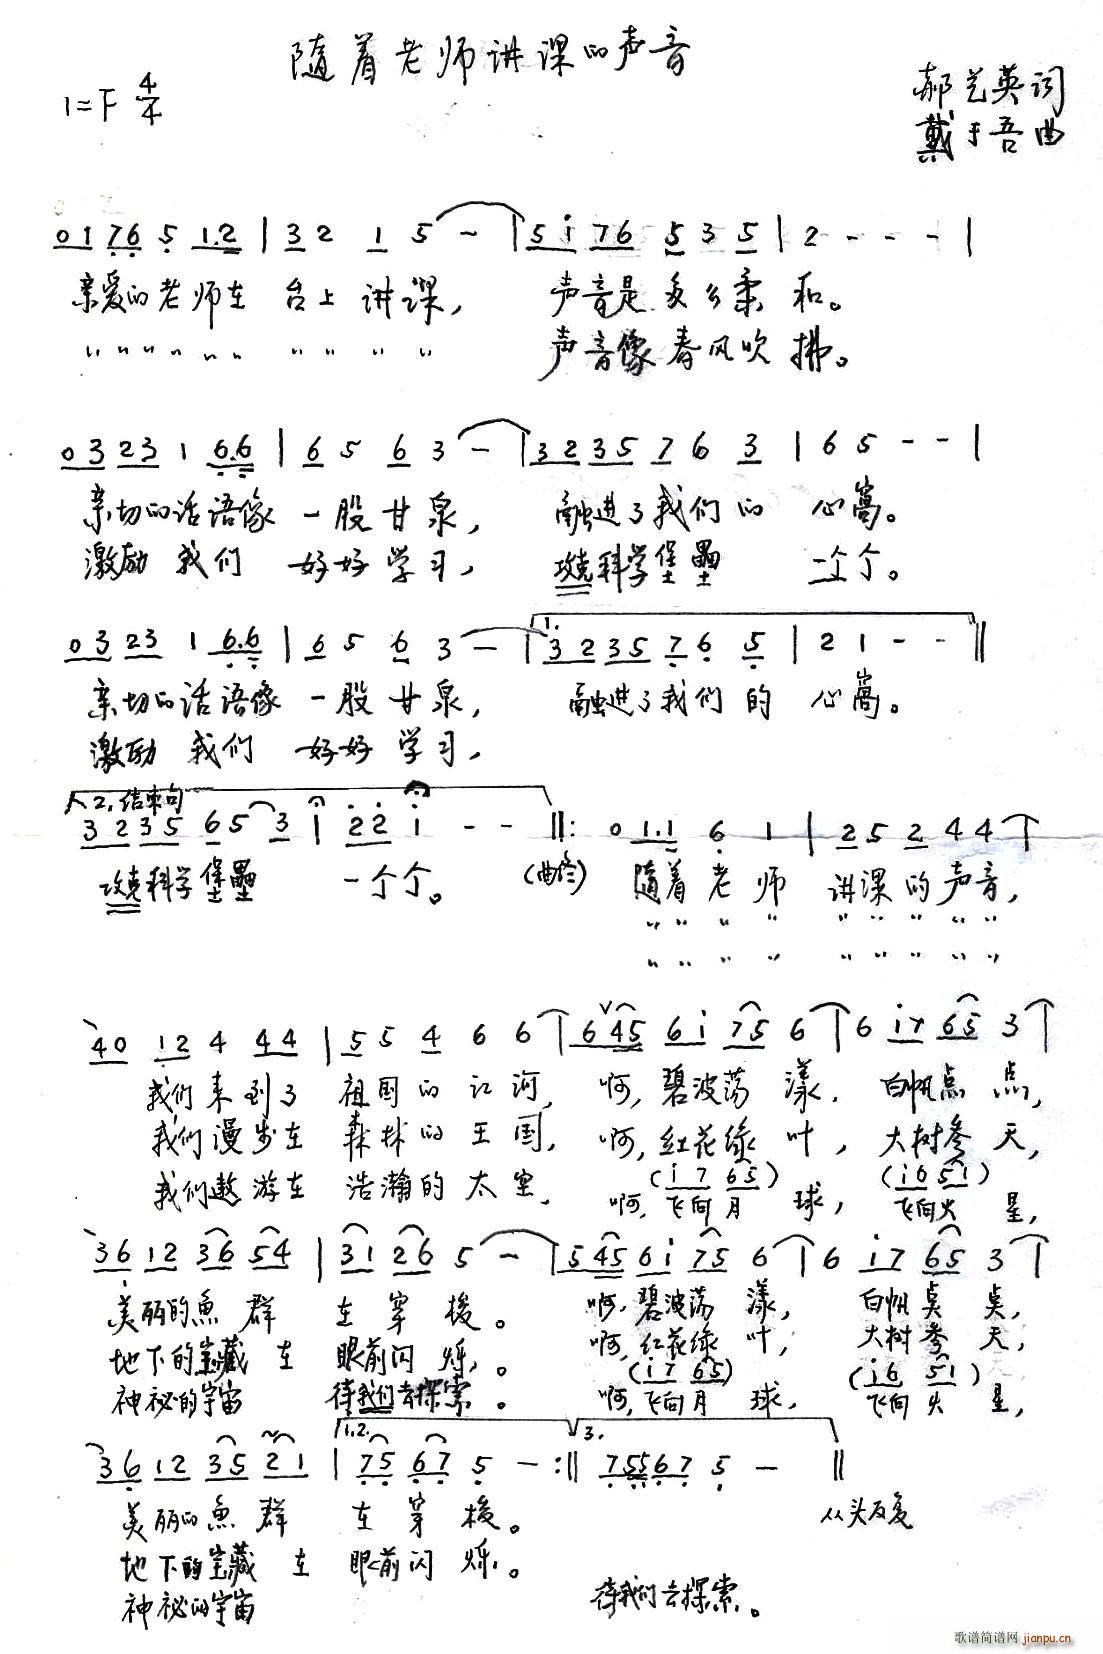 随着老师讲课的声音
1=F 4/4
郝艺英词
戴于吾曲
0 1 7 6 5 1. 2 | 3 2 1 5 - | 5 i 7 6 5 3 5 | 2 - - - |
亲爱的老师在 台上讲课, 声音是多么柔和。
" " " " " " " " " " 声音像春风吹拂。
0 3 2 3 1 6. 6 | 6 5 6 3 - | 3 2 3 5 7 6 3 | 6 5 - - |
亲切的话语像 一股甘泉, 融进了我们的 心窝。
激励我们 好好学习, 攻克科学堡垒 一个个。
0 3 2 3 1 6. 6 | 6 5 6 3 - | 1. 3 2 3 5 7 6 5 | 2 1 - - ‖
亲切的话语像 一股甘泉, 融进了我们的 心窝。
激励我们 好好学习,
2. 结束句
3 2 3 5 6 5 3 i | 2 2 i - - ‖: 0 1. 1 6 1 | 2 5 2 4 4 |
攻克科学堡垒 一个个。 随着老师 讲课的声音,
" " " " " " " " "
" " " " " " " " "
4 0 1 2 4 4 4 | 5 5 4 6 6 | 6 4 5 6 i 7 5 6 | 6 i 7 6 5 3 |
我们来到了 祖国的江河, 啊, 碧波荡漾, 白帆点点,
我们漫步在 森林的王国, 啊, 红花绿叶, 大树参天,
(i 7 6 5) (i 6 5 i)
我们遨游在 浩瀚的太空, 啊, 飞向月球, 飞向火星,
3 6 1 2 3 6 5 4 | 3 1 2 6 5 - | 5 4 5 6 i 7 5 6 | 6 i 7 6 5 3 |
美丽的鱼群 在穿梭。 啊, 碧波荡漾, 白帆点点,
地下的宝藏在 眼前闪烁。 啊, 红花绿叶, 大树参天,
(i 7 6 5) (i 6 5 i)
神秘的宇宙 待我们去探索。 啊, 飞向月球, 飞向火星,
1.2. 3.
3 6 1 2 3 5 2 1 | 7 5 6 7 5 - :‖ 7 5 5 6 7 5 - ‖
美丽的鱼群 在穿梭。 从头反复
地下的宝藏在 眼前闪烁。
神秘的宇宙 待我们去探索。
歌谱简谱网 jianpu.cn